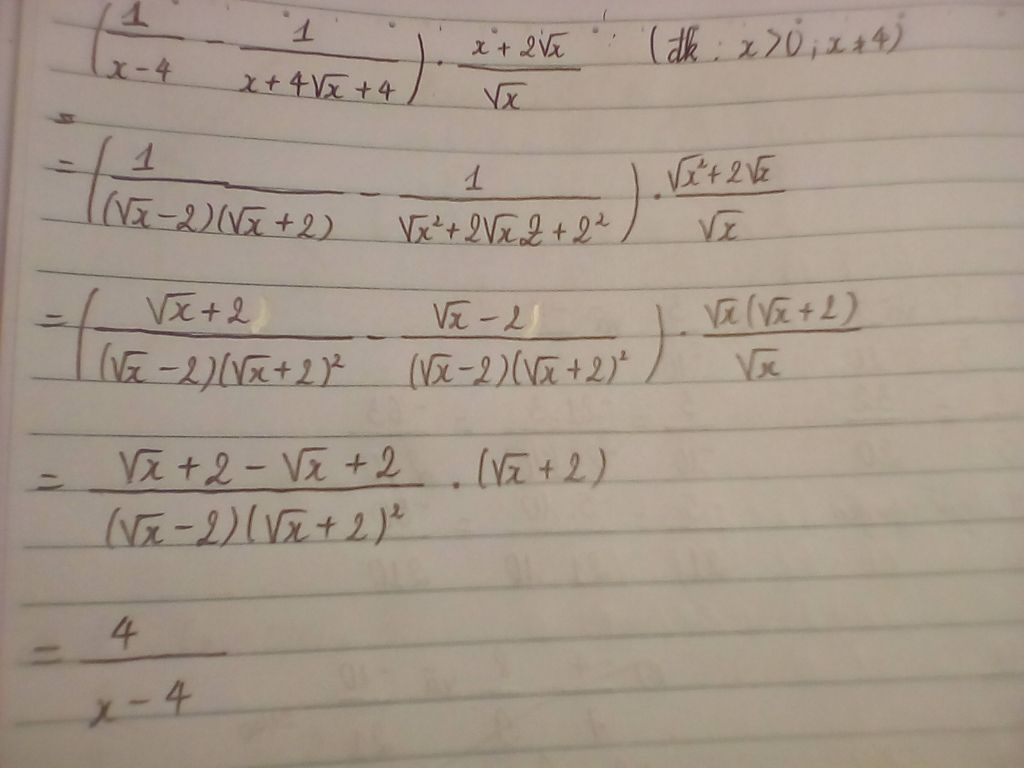 (1/(x-4) - 1/(x+4√x+4)) . (x+2√x)/√x (đk: x>0; x≠4)
=
= (1/((√x-2)(√x+2)) - 1/(√x²+2√x2+2²)) . (√x²+2√x)/√x
= ((√x+2)/((√x-2)(√x+2)²) - (√x-2)/((√x-2)(√x+2)²)) . (√x(√x+2))/√x
= (√x+2-√x+2)/((√x-2)(√x+2)²) . (√x+2)
= 4/(x-4)